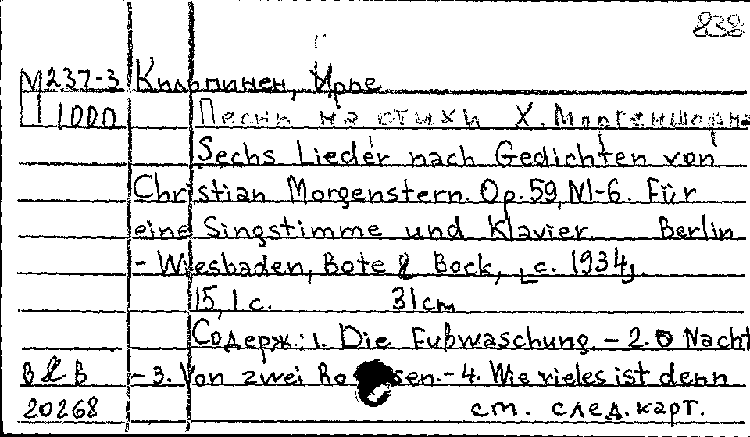 838
М237-3 Кильпинен, Ирье
П 1000 Песни на стихи Х. Моргенштерна
Sechs Lieder nach Gedichten von
Christian Morgenstern. Op.59, N1-6. Für
eine Singstimme und Klavier. Berlin
- Wiesbaden, Bote & Bock, [c. 1934].
15, 1 с. 31 cm
Содерж.: 1. Die Fußwaschung. - 2. O Nacht
B & B - 3. Von zwei Rosen. - 4. Wie vieles ist denn
20268 см. след. карт.